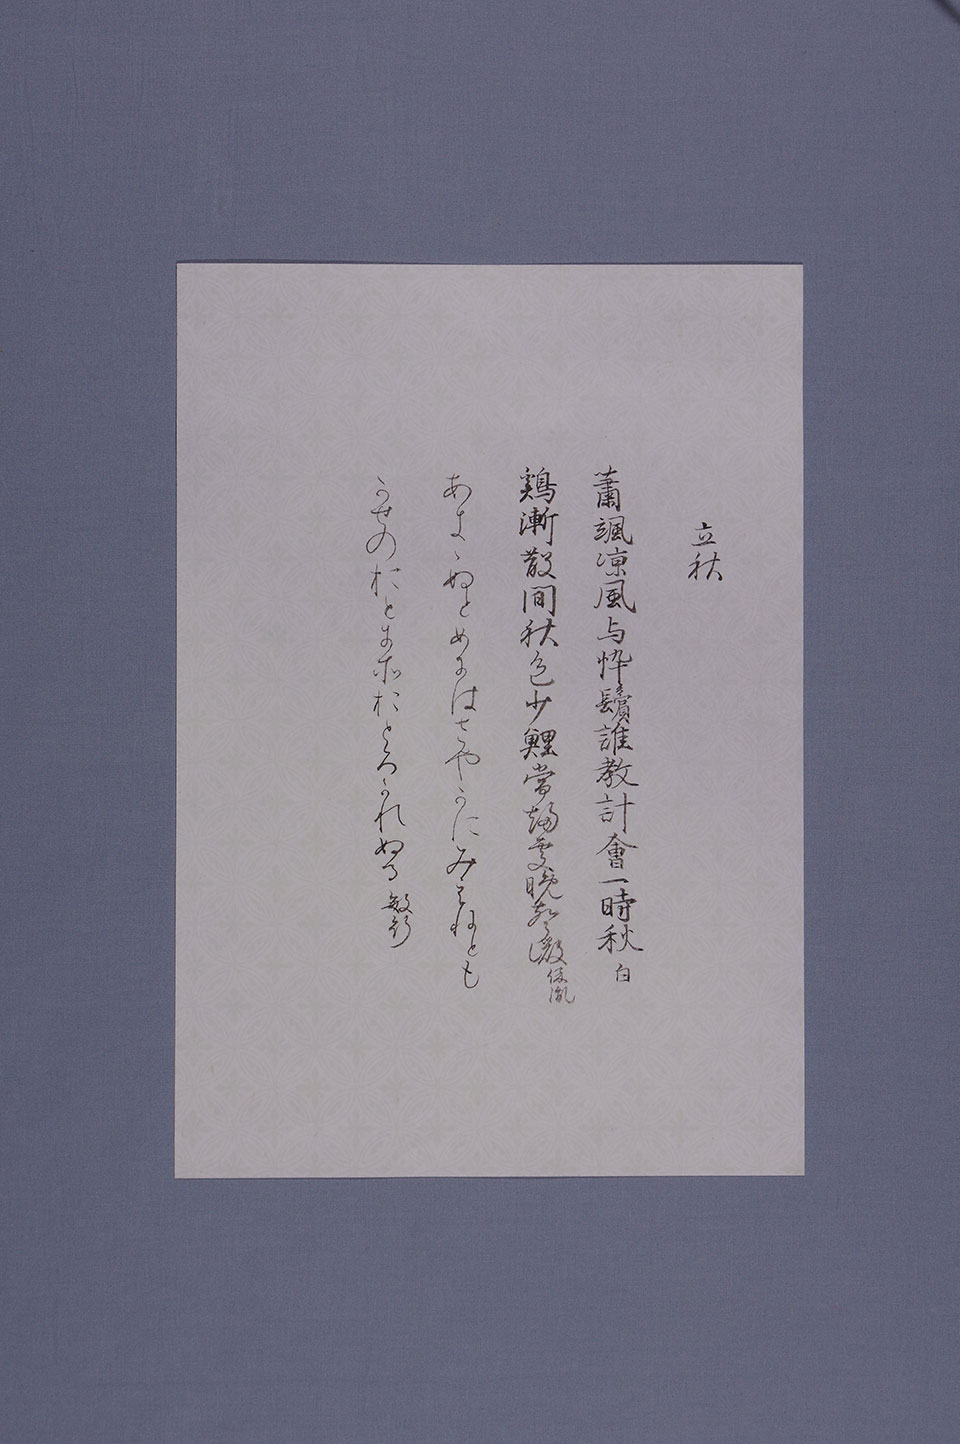 立秋
蕭颯凉風与悴鬢誰教計會一時秋 白
鶏漸散間秋色少鯉常趍處晩聲微 保胤
あきゝぬとめにはさやかにみえねとも
かせのおとにそおとろかれぬる 敏行